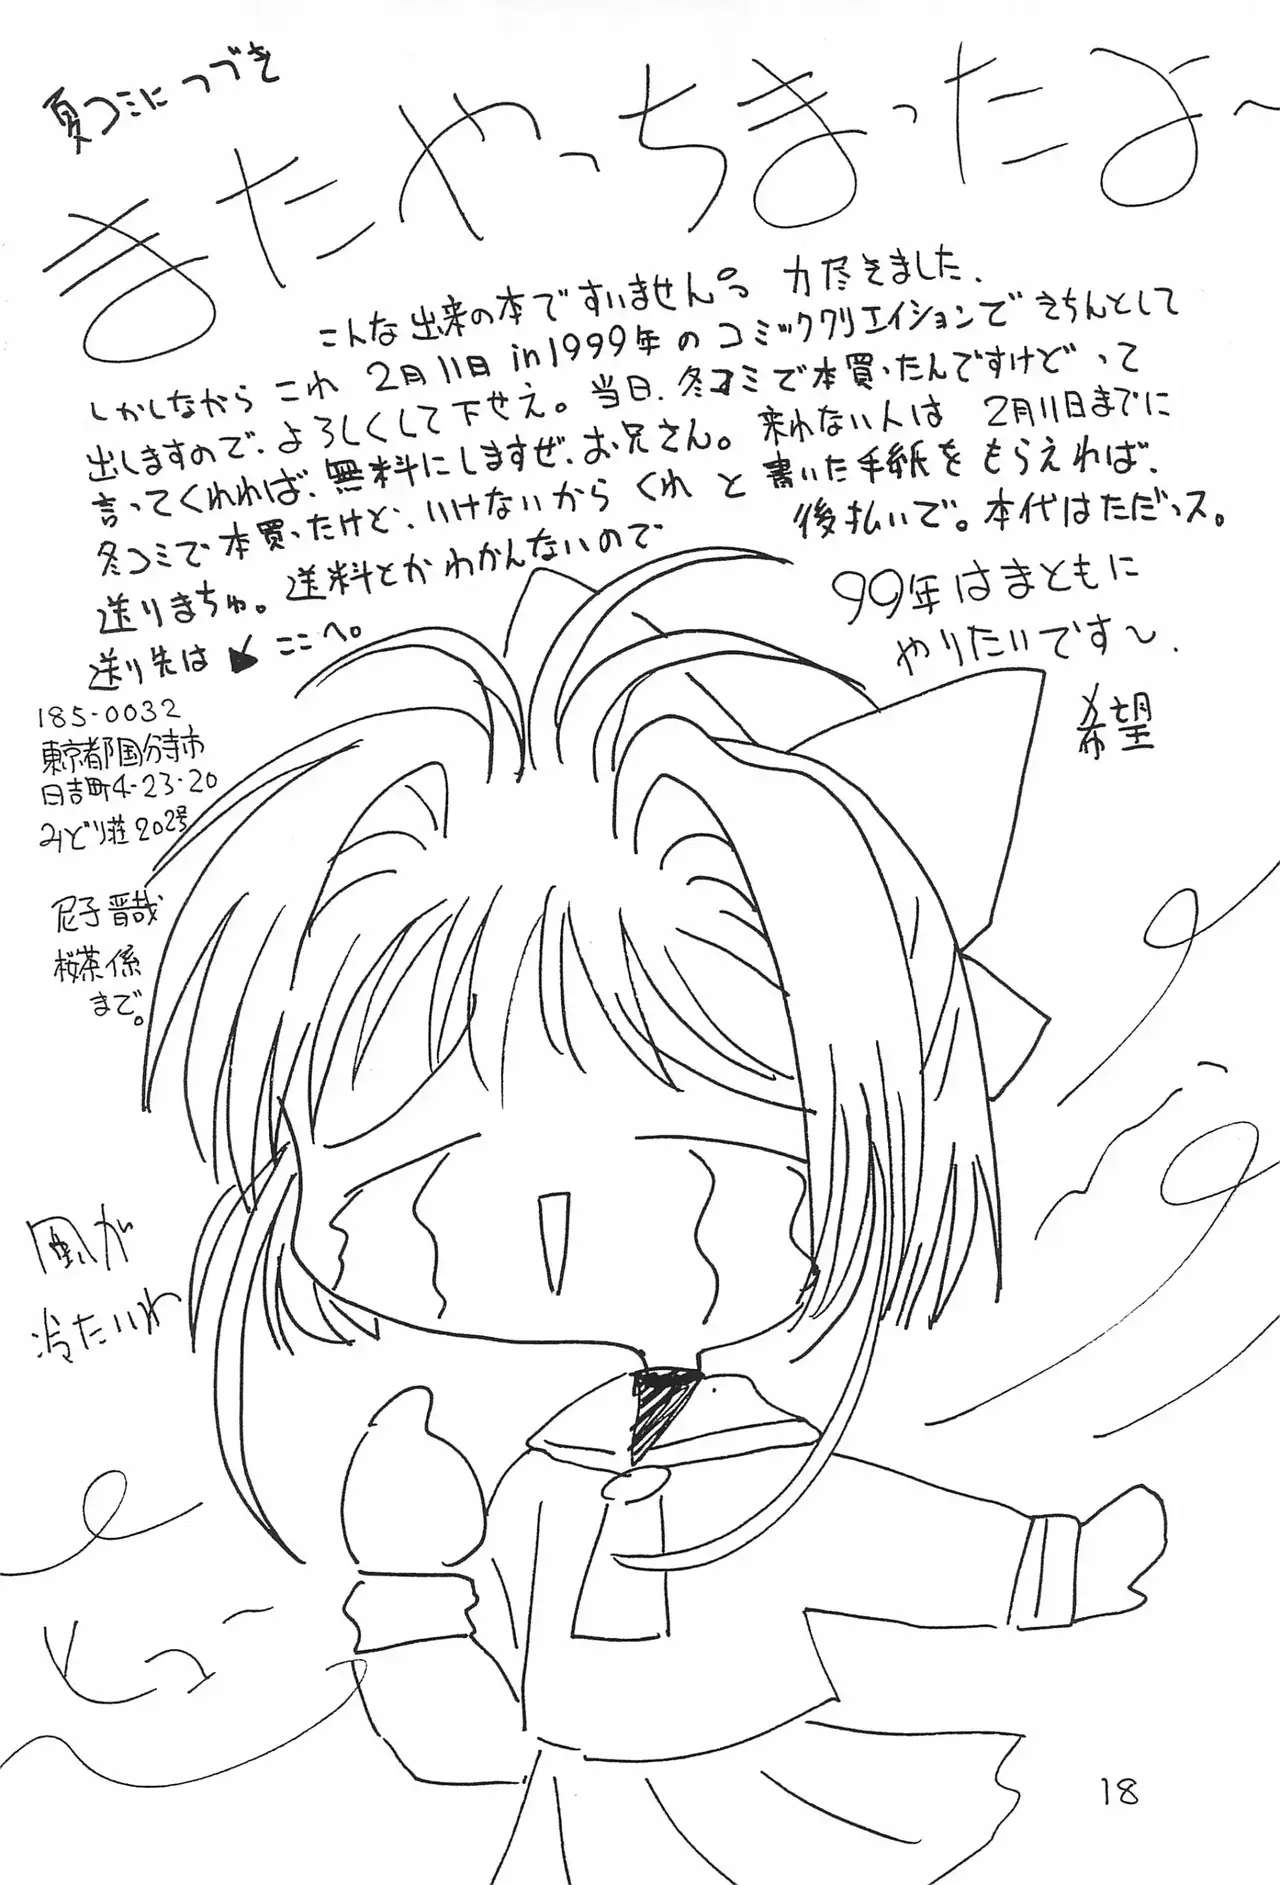 夏コミにつづき
またやっちまったよ～
こんな出来の本ですいませんっ。力尽きました.
しかしながら これ 2月11日 in 1999年のコミッククリエイションできちんとして
出しますので、よろしくして下せえ。当日、冬コミで本買ったんですけどって
言ってくれれば、無料にしますぜ、お兄さん。来れない人は 2月11日までに
冬コミで本買ったけど、いけないからくれと書いた手紙をもらえれば、
送りまちゅ。送料とかわかんないので 後払いで。本代はただっス。
送り先は ここへ。
99年はまともに
やりたいです～.
希望
185-0032
東京都国分寺市
日吉町4-23-20
みどり荘202号
尼子晋哉
桜茶係
まで。
風が
冷たいわ
ヒュー
18